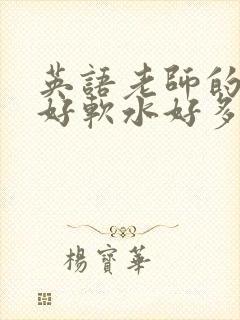 英語老師的
好軟水好多
楊寶華